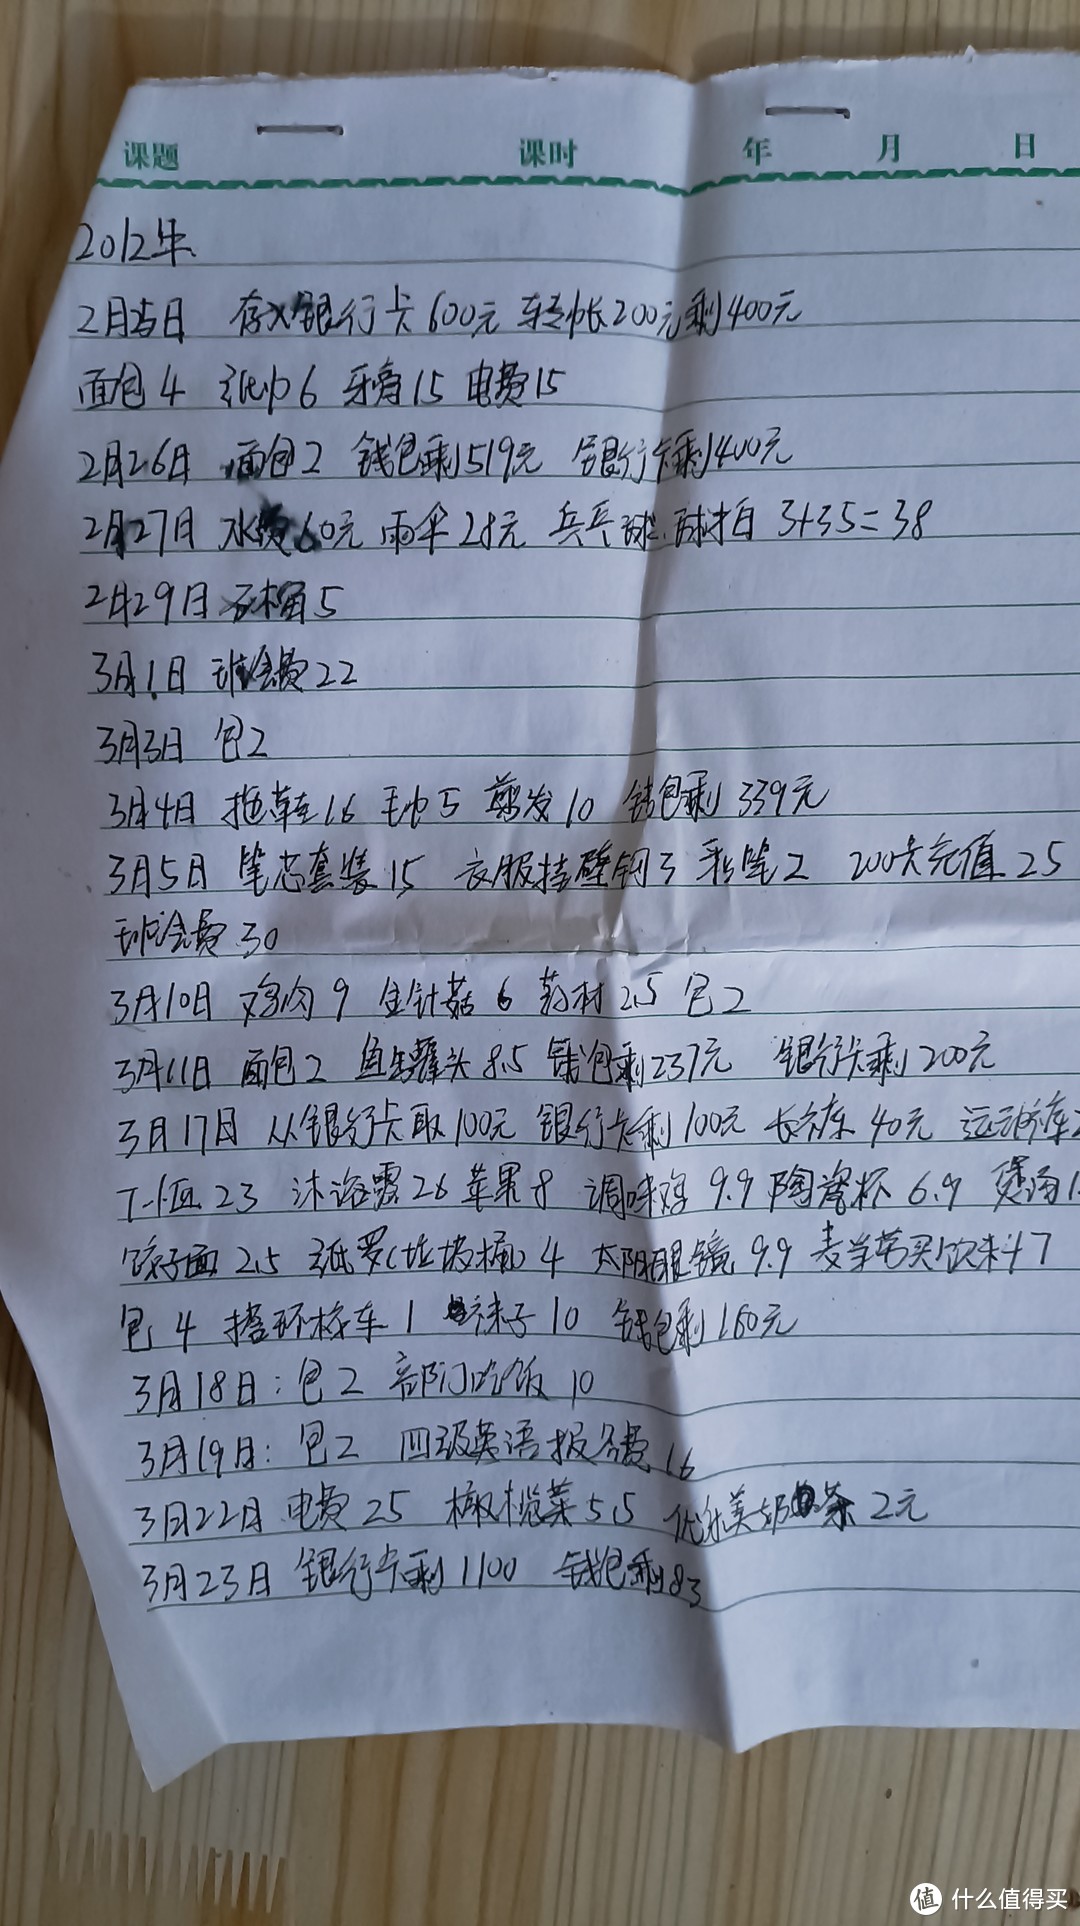 课题 课时 年 月 日
2012年
2月25日 存入银行卡600元 转帐200元剩400元
面包4 纸巾6 牙膏15 电费15
2月26日 面包2 钱包剩519元 银行卡剩400元
2月27日 水费60元 雨伞28元 兵乒球、球拍 3+35=38
2月29日 水桶5
3月1日 班会费22
3月3日 包2
3月4日 拖鞋16 毛巾5 剪发10 钱包剩339元
3月5日 笔芯套装15 衣服挂壁钩3 彩笔2 200大充值25
班会费30
3月10日 鸡肉9 金针菇6 药材2.5 包2
3月11日 面包2 鱼罐头8.5 钱包剩237元 银行卡剩200元
3月17日 从银行卡取100元 银行卡剩100元 长裤40元 运动裤
T恤23 沐浴露26 苹果8 调味鸡9.9 陶瓷杯6.9 煲汤
饺子面2.5 纸罗(垃圾桶)4 太阳眼镜9.9 麦当劳买饮料7
包4 搭环校车1 袜子10 钱包剩160元
3月18日:包2 部门吃饭10
3月19日:包2 四级英语报名费16
3月22日 电费25 橄榄菜5.5 优乐美奶茶2元
3月23日 银行卡剩1100 钱包剩83
值 什么值得买